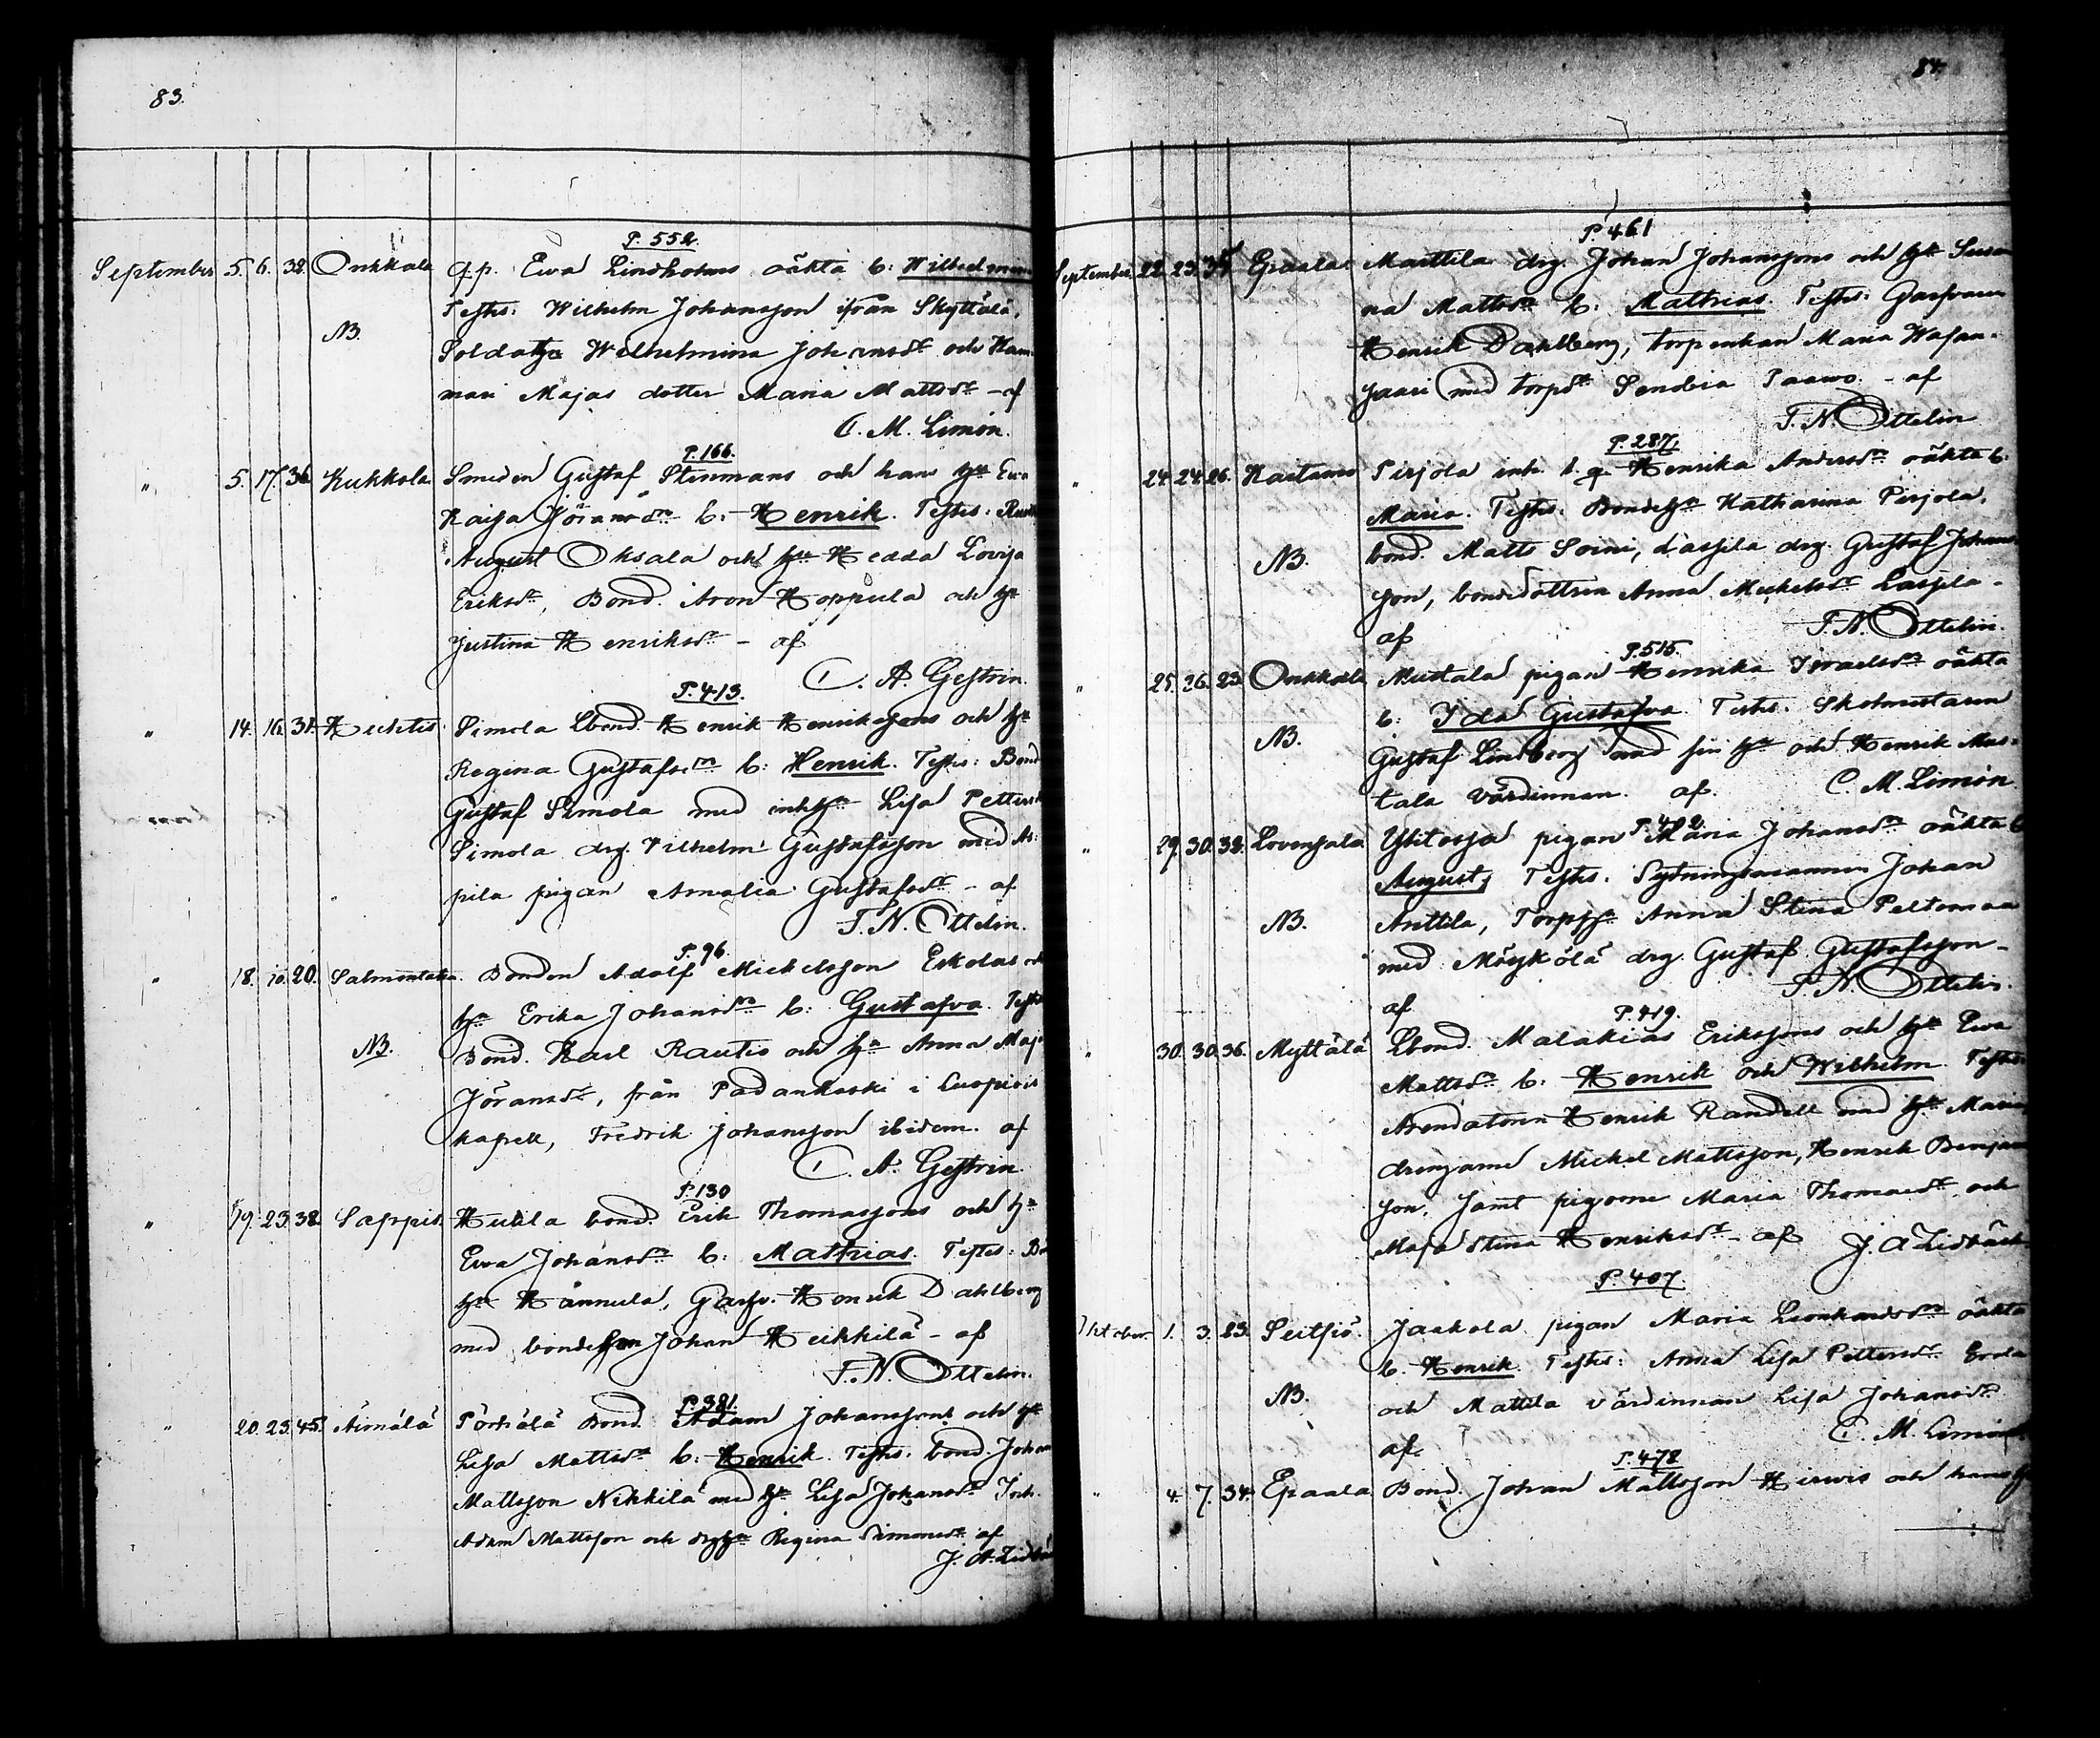 83.
P. 552.
September 5. 6. 32. Onkkala q.p. Ewa Lindholms oäkta b: Wilhelmina
Testes: Wilhelm Johansson ifrån Skyttälä,
NB. Soldath. Wilhelmina Johansdr och Kam-
mari Majas dotter Maria Mattsdr - af
C. M. Limón.
P. 166.
" 5. 17. 36. Kukkola Smeden Gustaf Stenmans och hans hu Ewa
Kaisa Jöransdr b: Henrik. Testes: Rusth
August Oksala och hu Hedda Lovisa
Eriksdr, Bond. Aron Hoppula och hu
Justina Henriksdr - af
C. A. Gestrin.
P. 413.
" 14. 16. 31. Huhtis Simola Lbond. Henrik Henrikssons och hu
Regina Gustafsdr b: Henrik. Testes: Bond
Gustaf Simola med inh Lisa Pettersdr
Simola drg. Vilhelm Gustafsson med As-
pila pigan Amalia Gustafsdr - af
F. N. Ottelin.
P. 96.
" 18. 20. 20. Salmentaka Bonden Adolf Michelsson Eskolas och
hu Erika Johansdr b: Gustafva. Testes
NB. Bond. Karl Rautio och hu Anna Maja
Jöransdr, från Padankoski i Luopiois
kapell, Fredrik Johansson ibidem. af
C. A. Gestrin.
P. 130
" 19. 23. 38 Sappis. bond. Erik Thomassons och hu
Ewa Johansdr b: Mathias. Testes: Bo
hu Hännula, Garfv. Henrik Dahlberg
med bondeson Johan Heikkilä - af
F. N. Ottelin.
P. 381.
" 20. 23. 45. Äimälä Pörhölä Bond. Adam Johanssons och hu
Lisa Mattsdr b: Henrik. Testes: bond. Johan
Mattsson Nikkilä med hu Lisa Johansdr Inh.
Adam Mattsson och drgh Regina Simonsdr af
J. A. Lidbäck
84.
P. 461
September 22. 23. 35 Epaala Marttila drg. Johan Johanssons och hu Susan-
na Mattsdr b: Mathias. Testes: Garfvaren
Henrik Dahlberg, torpenkan Maria Wasan-
jaari med torpdr Senobia Paawo. - af
F. N. Ottelin
P. 287.
" 24. 24. 26. Kaitamo Pirjola inh. Henrika Andersdr oäkta b:
Maria. Testes: Bondeh Katharina Pirjola,
NB. bond. Matts Soini, Lassila drg. Gustaf Johans-
son, bondedottren Anna Michelsdr Lassila -
af F. N. Ottelin.
P. 515.
" 25. 26. 23. Onkkala Mustala pigan Henrika Israelsdr oäkta
b: Ida Gustafva. Testes: Skolmästaren
NB. Gustaf Lindberg med sin hu och Henrik Mus-
tala värdinnan. af. C. M. Limón
P. 492
" 29. 30. 32. Lovensala pigan Maria Johansdr oäkta b
August, Testes. Sytningsmannen Johan
NB. Anttila, Torph Anna Stina Peltomaa
med Möykölä drg. Gustaf Gustafsson -
af F. N. Ottelin.
P. 419.
" 30. 30. 36. Myttälä Lbond. Malakias Erikssons och hu Ewa
Mattsdr b: Henrik och Wilhelm. Testes
Arendatoren Henrik Randell med hu Maria
drengarne Michel Mattsson, Henrik Benjam
son, jemt pigorne Maria Thomasdr och
Maja Stina Henriksdr - af J. A Lidbäck
P. 407.
Oktober. 1. 3. 23. Seitsiö. Jaakola pigan Maria Leonhardsdr oäkta
b. Henrik. Testes: Anna Lisa Pettersdr Erola
NB. och Mattila värdinnan Lisa Johansdr
af. C. M. Limón
P. 478
" 4. 7. 34. Epaala Bond. Johan Mattsson Hirvis och hans hu